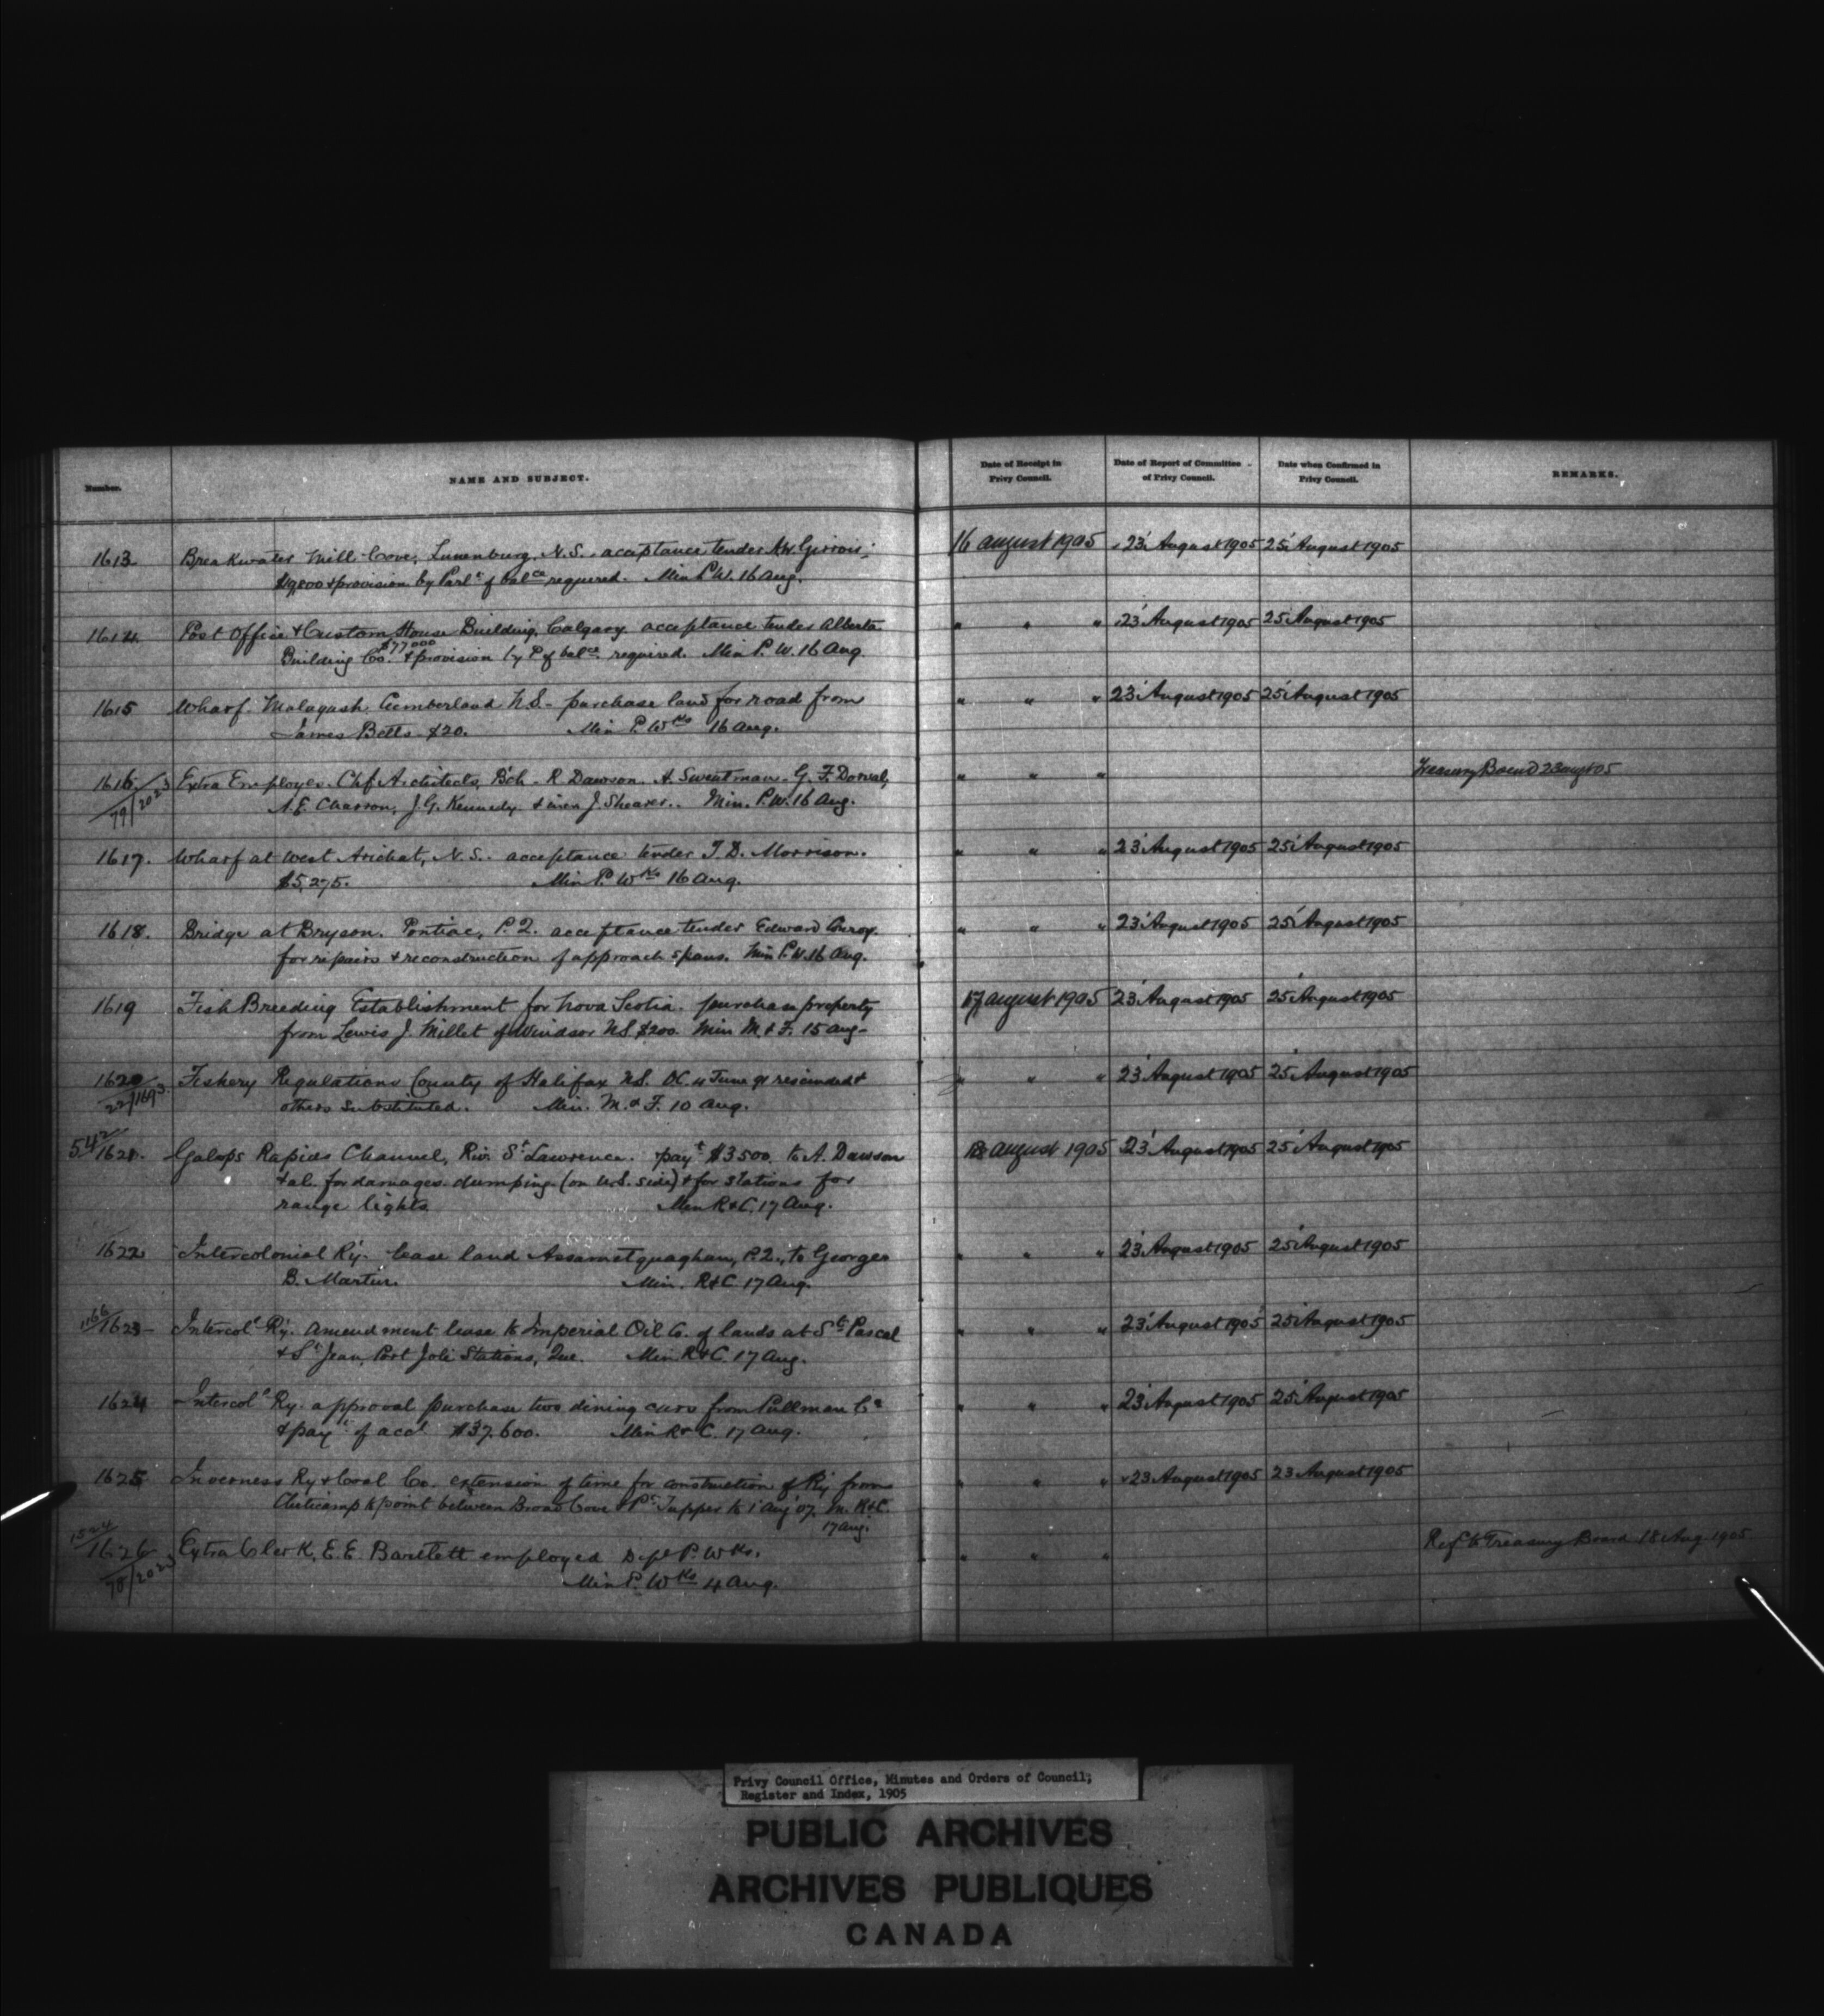 Number.
NAME AND SUBJECT.
Date of Receipt in Privy Council.
Date of Report of Committee of Privy Council.
Date when Confirmed in Privy Council.
REMARKS.
1613 Breakwater Mill Cove, Lunenburg, N.S. acceptance tender 16 August 1905 23 August 1905 25 August 1905
+ provision by Parlt of balce required. Min P.W. 16 Aug.
1614 Post Office + Custom House Building, Calgary acceptance tender Alberta " " " 23 August 1905 25 August 1905
Building Co. $77000 + provision by P of balce required. Min P.W. 16 Aug.
1615 Wharf Malagash, Cumberland N.S. - purchase land for road from " " " 23 August 1905 25 August 1905
James Betts $20. Min P. Wks 16 Aug.
1616 Extra Employes. Chf Architects Bch - R. Dawson. A. Sweatman - G. F. Dorval, " " " Treasury Board 23 augt 05
79/2023 A.E. Charron, J.G. Kennedy + J. Shearer. Min. P.W. 16 Aug.
1617. Wharf at West Arichat, N.S. acceptance tender T. D. Morrison. " " " 23 August 1905 25 August 1905
$5,275. Min P. Wks 16 Aug.
1618. Bridge at Bryson. Pontiac, P.Q. acceptance tender Edward " " " 23 August 1905 25 August 1905
for repairs + reconstruction of approach spans. Min P.W. 16 Aug.
1619 Fish Breeding Establishment for Nova Scotia. purchase property 17 August 1905 23 August 1905 25 August 1905
from Lewis J. Millet of Windsor N.S. $200. Min M. & F. 15 Aug -
1620 Fishery Regulations County of Halifax N.S. OC. 4 June 91 rescinded + " " " 23 August 1905 25 August 1905
22/1693 others substituted. Min. M. & F. 10 Aug.
542
1621. Galops Rapids Channel, Riv. St Lawrence. payt $3500. to A. Dawson 18 August 1905 23 August 1905 25 August 1905
+ al. for damages dumping (on U.S. side) + for stations for
range lights Min R & C. 17 Aug.
1622 Intercolonial Ry. lease land Assametquaghan, P.Q., to Georges " " " 23 August 1905 25 August 1905
B. Martin. Min. R & C. 17 Aug.
1166
1623 Intercoll Ry. amendment lease to Imperial Oil Co. of lands at St Pascal " " " 23 August 1905 25 August 1905
+ St Jean, Port Joli Stations, Que. Min R & C. 17 Aug.
1624 Intercoll Ry. approval purchase two dining cars from Pullman Co " " " 23 August 1905 25 August 1905
+ payt of acct $37,600. Min R & C. 17 Aug.
1625 Inverness Ry + Coal Co. extension of time for construction of Ry from " " " 23 August 1905 23 August 1905
Cheticamp to point between Broad Cove + Pt Tupper to 1 Aug '07. M. R & C.
17 Aug.
1524
1626 Extra Clerk, E. E. Bartlett employed Dept P. Wks. " " " Ref to Treasury Board 18 Aug. 1905
78/2023 Min P. Wks 4 Aug.
Privy Council Office, Minutes and Orders of Council;
Register and Index, 1905
PUBLIC ARCHIVES
ARCHIVES PUBLIQUES
CANADA